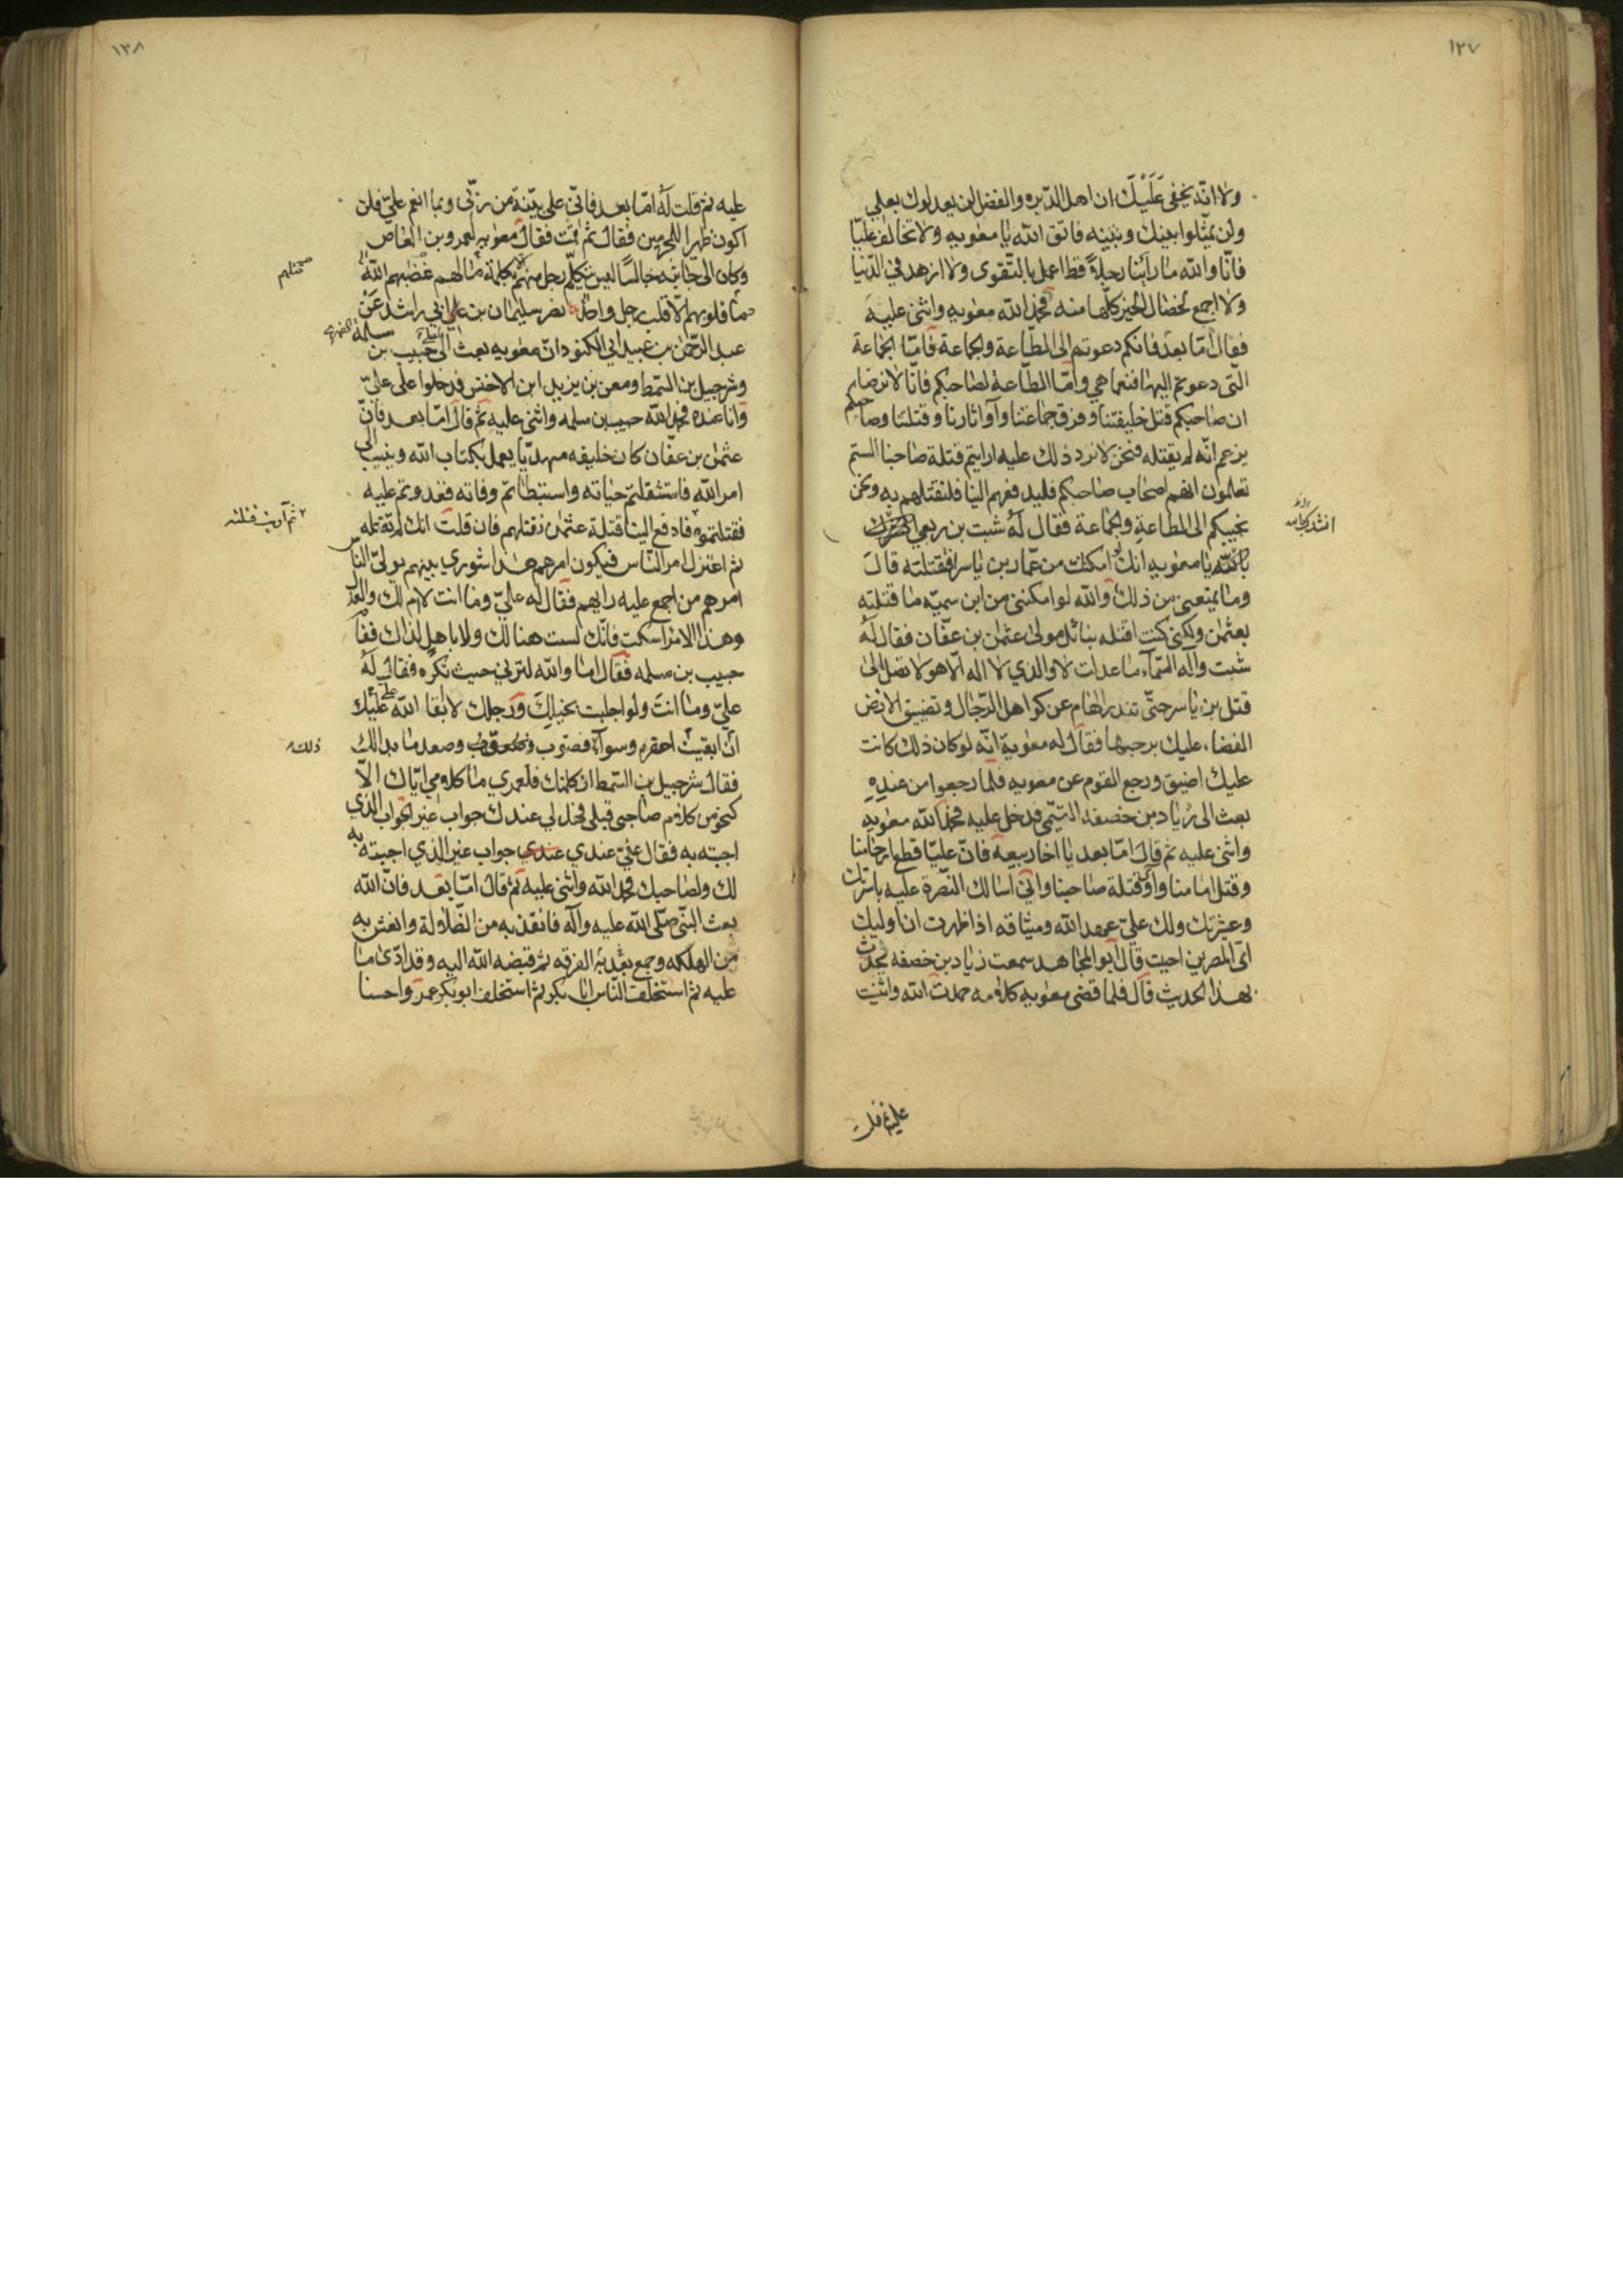 ١٢٧
ولا انّه يخفى عَلَيْكَ ان اهل الدّيره والفضل لن يعدلوك بعلي
ولن يمثّلوا بينك وبينه فاتق الله يا معويه ولا تخالف عليّا
فانّا والله ما رأينا رجلاً قط اعمل بالتّقوى ولا ازهد في الدّنيا
ولا اجمع لخصال الخير كلّها منه فحمد الله معويه واثنى عليه
فقال امّا بعد فانكم دعوتم الى الطّاعة والجماعة فامّا الجماعة
الّتي دعوتم اليها فنعما هي وامّا الطّاعة لصاحبكم فانّا لا نرضا
ان صاحبكم قتل خليفتنا وفرق جماعتنا وآوا ثارنا وقتلتنا وصاحبكم
يزعم انّه لم يقتله فنحن لا نرد ذلك عليه ارايتم قتلة صاحبنا الستم
تعلمون انهم اصحاب صاحبكم فليدفعهم الينا فلنقتلهم به ونحن
نجيبكم الى الطاعة والجماعة فقال لهُ شبت بن ربعي
بالله يا معويه انك امكنت من عمّار بن ياسر فقتلته قالَ
وما يمنعني من ذلك والله لو امكنني من ابن سميّه ما قتلته
بعثمن ولكني كنت اقتله بنائل مولى عثمن بن عفّان فقال لهُ
شبت واله السّمآء ما عدلت لا والذي لا اله الّا هو لا تصل الى
قتل بن ياسر حتّى تندر الهام عن كواهل الرّجال وتضيق الارض
الفضاء عليك برحبها فقال له معوية انّه لو كان ذلك كانت
عليك اضيق ورجع القوم عن معويه فلما رجعوا من عندِهِ
بعث الى زياد بن خصفه التّيمي فدخل عليه فحمد الله معويه
واثنى عليه ثم قال امّا بعد يا اخا ربيعة فانّ عليّا قطع ارحامنا
وقتل امامنا وآوى قتلة صاحبنا واني اسالك النّصرة عليه باسرتك
وعشيرتك ولك عليّ عهد الله وميثاقه اذا ظهرت ان اوليك
ايّ المصرين احببت قال ابو المجاهد سمعت زياد بن خصفه يحدّث
بهذا الحديث قال فلما قضى معويه كلامه حمدت الله واثنيت
عليه ثم قلت
١٢٨
عليه ثم قلت لهُ امّا بعد فانّي على بيّنة من ربّي وبما انعم عليّ فلن
اكون ظهيرا للمجرمين فقال ثم قمت فقال معويه لعمرو بن العاص
وكان الى جانبه جالسًا ليس يكلّم رجل منهم بكلمة ما لهم عضبهم الله
ما قلوبهم الّا قلب رجل واحد نصر سليمان بن ابي راشد عَنْ
عبد الرّحمن بن عبيد ابي الكنود انّ معويه بعث الى حبيب بن
مسلمة الفهري
وشرحبيل بن السّمط ومعن بن يزيد ابن الاخنس فدخلوا على عليّ
وانا عنده فحمد الله حبيب بن سلمه واثنى عليه ثم قال امّا بعد فانّ
عثمن بن عفّان كان خليفه مهديّا يعمل بكتاب الله وينيب الى
امر الله فاستثقلتم حياته واستبطاتم وفاته فعدوتم عليه
فقتلتموه فادفع الينا قتلة عثمن نقتلهم فان قلت انك لم تقتله
ثم اعتزل امر النّاس فيكون امرهم هذا شورى بينهم يولّي النّاس
امرهم من اجمع عليه رايهم فقال له عليّ وما انت لا ام لك والعزل
وهذا الامر اسكت فانّك لست هنالك ولا باهل لذاك فقام
حبيب بن مسلمه فقال اما والله لتريني حيث تكره فقال لهُ
عليّ وما انتَ ولو اجلبت بخيلك ورجلك لا ابقا الله عليك
ان ابقيت فصوّب وصعد ما بدا لك
فقال شرحبيل بن السّمط ان كلمتك فلعمري ما كلامي ايّاك الّا
كنحو من كلام صاحبي قبلي فهل لي عندك جواب غير الجواب الذي
اجبته به فقال عليّ عندي جواب غير الذي اجبته به
لك ولصاحبك فحمد الله واثنى عليه ثم قال امّا بعد فانّ الله
بعث النّبي صلّى الله عليه وآله فانقذ به من الضّلالة وانعش به
من الهلكه وجمع به بعد الفرقه ثم قبضه الله اليه وقد ادّى ما
عليه ثم استخلف النّاس ابا بكر ثم استخلف ابو بكر عمر واحسنا